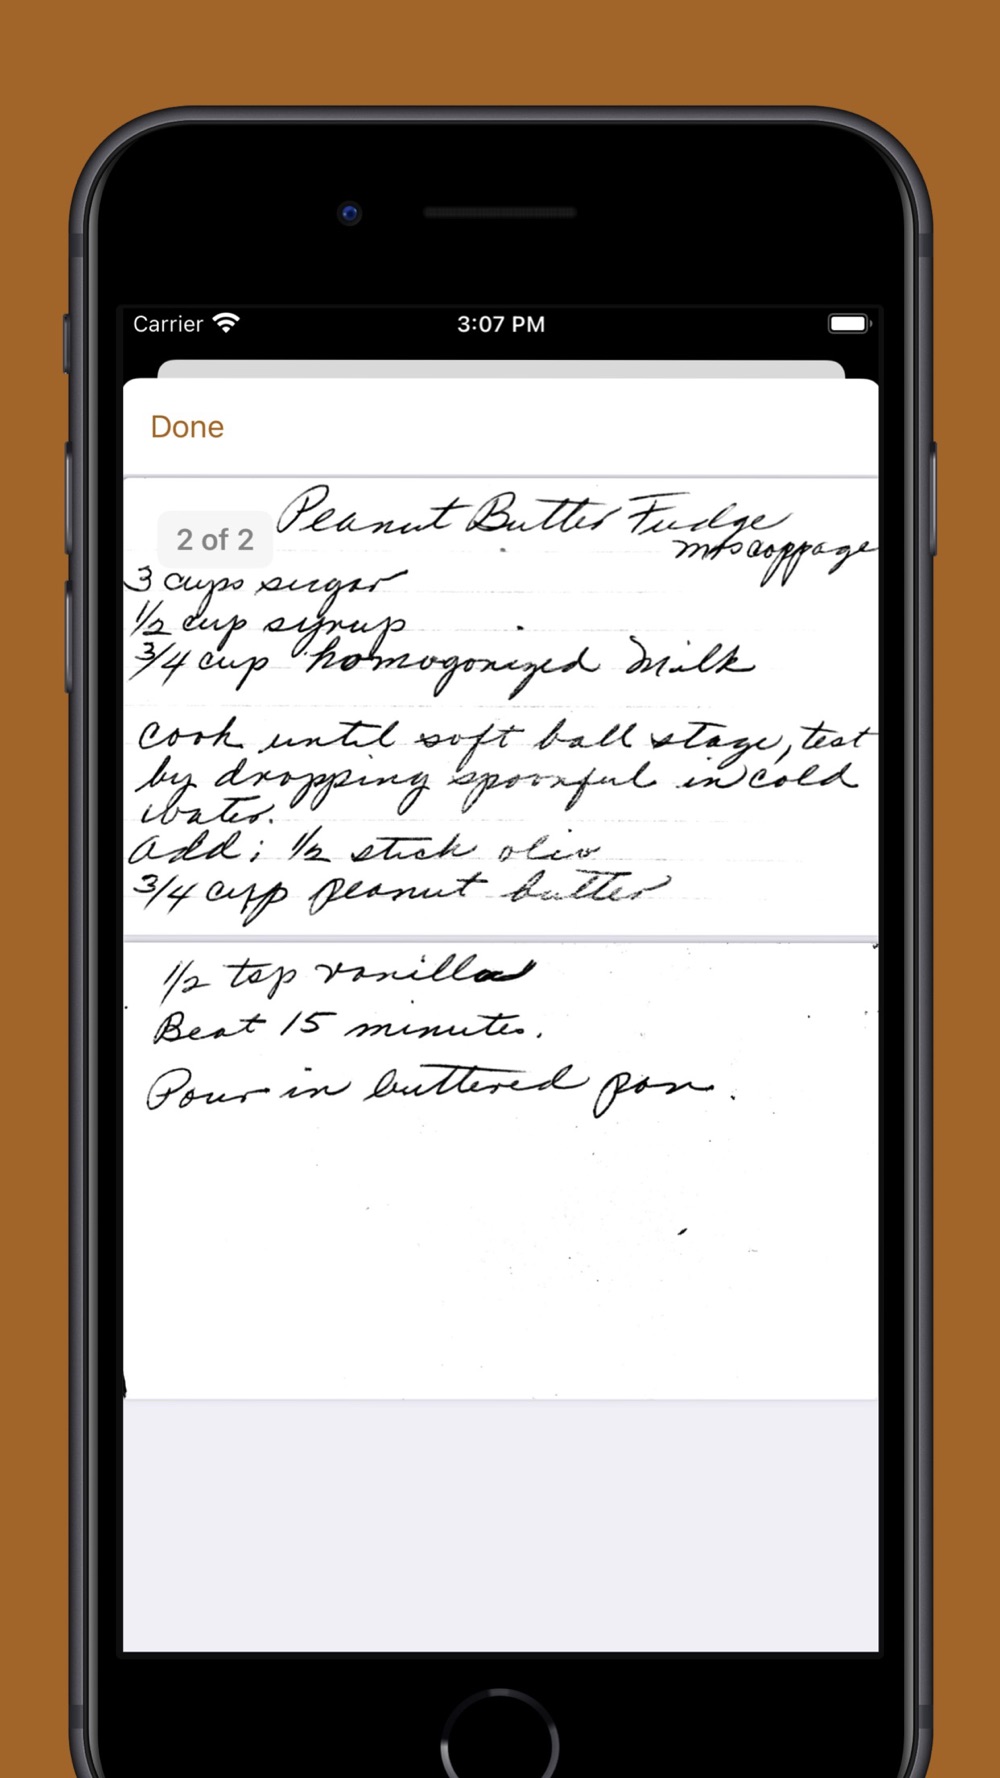 Carrier 3:07 PM
Done
2 of 2
Peanut Butter Fudge
Mrs Coppage
3 cups sugar
1/2 cup syrup
3/4 cup homogonized Milk
Cook until soft ball stage, test
by dropping spoonful in cold
water.
Add; 1/2 stick olio
3/4 cup peanut butter
1/2 tsp vanilla
Beat 15 minutes.
Pour in buttered pan.